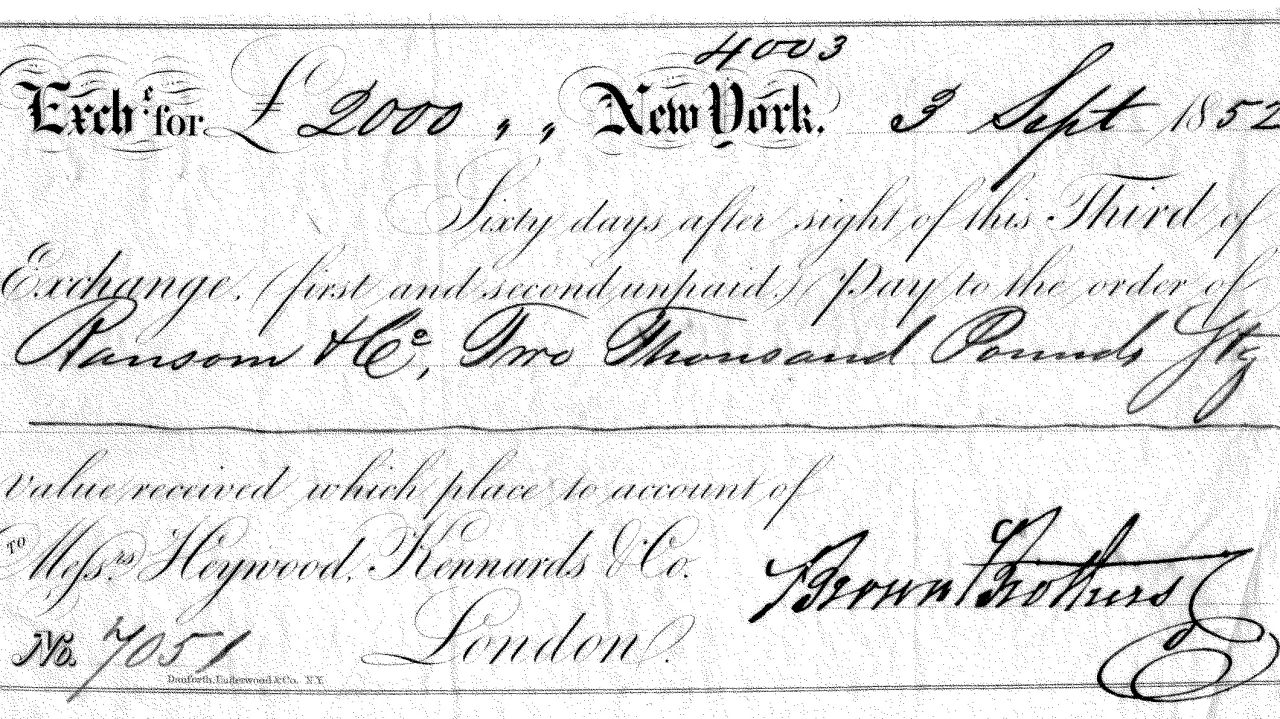 4003
Exchᵉ for £ 2000 , , New York. 3 Sept 1852
Sixty days after sight of this Third of
Exchange, (first and second unpaid.) Pay to the order of
Ransom & Cº, Two Thousand Pounds Stg
value received which place to account of
TO Messrs Heywood, Kennards & Co.
Brown Brothers
London.
No. 7051
Danforth, Underwood & Co. N.Y.